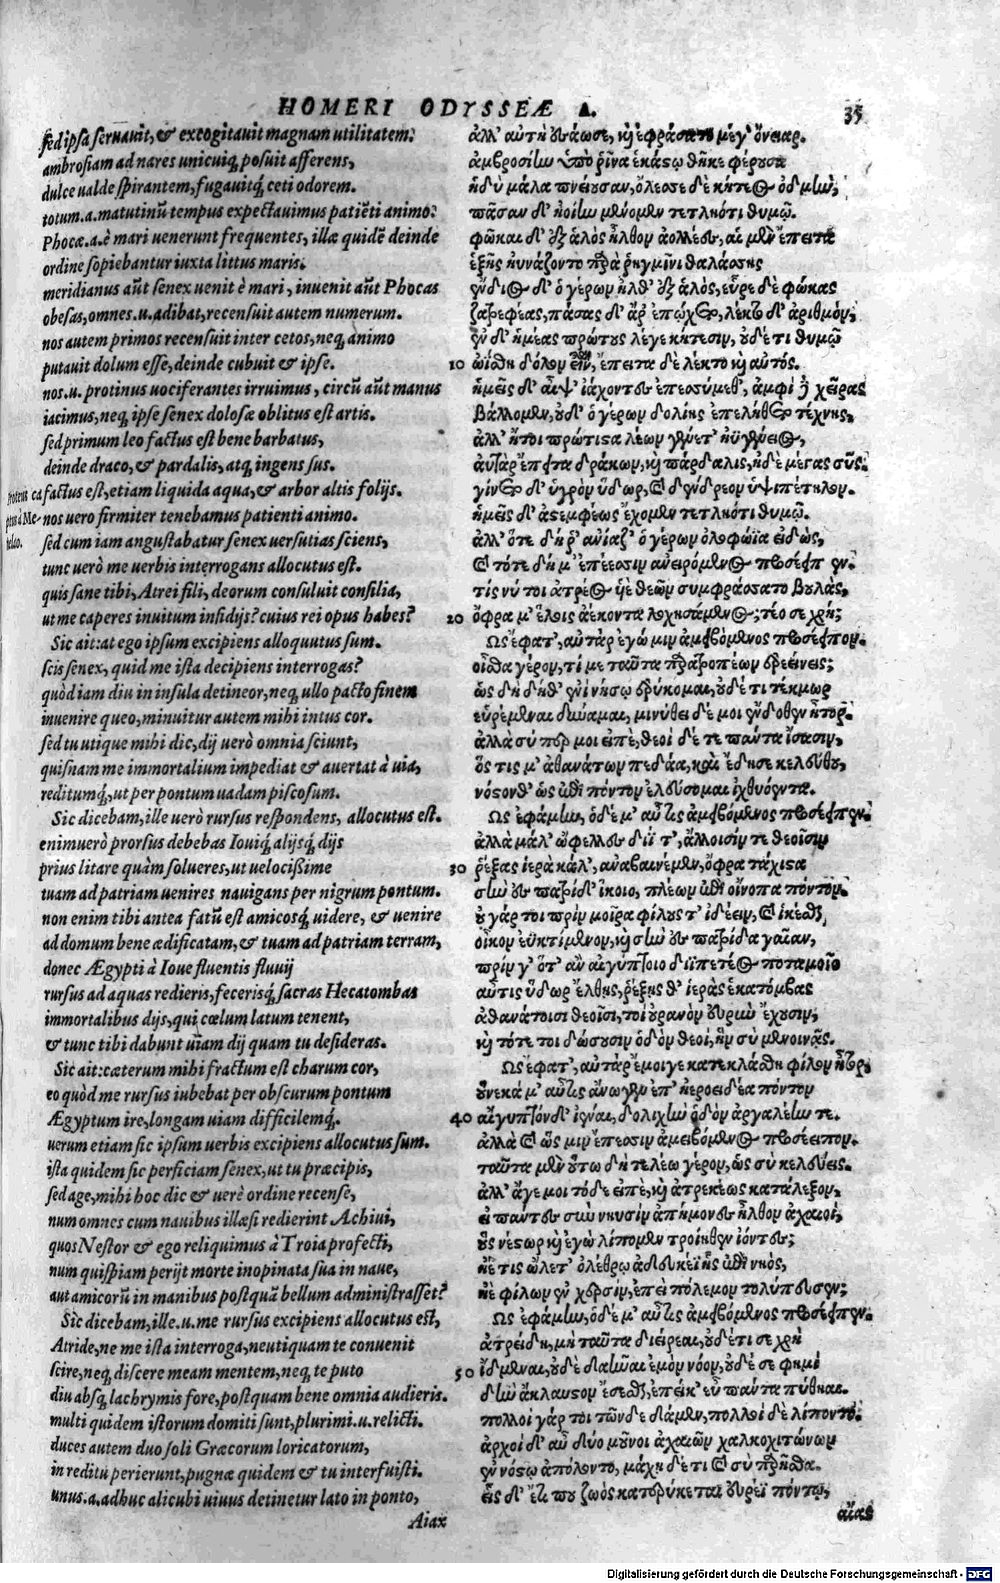 HOMERI ODYSSEÆ Δ.
35
sed ipsa seruauit, & excogitauit magnam utilitatem:
ambrosiam ad nares unicuiq; posuit afferens,
dulce ualde spirantem, fugauitq́; ceti odorem.
totum.a.matutinū tempus expectauimus patiēti animo:
Phocæ.a.è mari uenerunt frequentes, illæ quidē deinde
ordine sopiebantur iuxta littus maris.
meridianus aūt senex uenit è mari, inuenit aūt Phocas
obesas, omnes.u.adibat, recensuit autem numerum.
nos autem primos recensuit inter cetos, neq; animo
putauit dolum esse, deinde cubuit & ipse.
nos.u. protinus uociferantes irruimus, circū aūt manus
iacimus, neq; ipse senex dolosæ oblitus est artis.
sed primum leo factus est bene barbatus,
deinde draco, & pardalis, atq; ingens sus.
factus est, etiam liquida aqua, & arbor altis folijs.
nos uero firmiter tenebamus patienti animo.
sed cum iam angustabatur senex uersutias sciens,
tunc uerò me uerbis interrogans allocutus est.
quis sane tibi, Atrei fili, deorum consuluit consilia,
ut me caperes inuitum insidijs? cuius rei opus habes?
Sic ait: at ego ipsum excipiens alloquutus sum.
scis senex, quid me ista decipiens interrogas?
quòd iam diu in insula detineor, neq; ullo pacto finem
inuenire queo, minuitur autem mihi intus cor.
sed tu utique mihi dic, dij uerò omnia sciunt,
quisnam me immortalium impediat & auertat à uia,
reditumq́;, ut per pontum uadam piscosum.
Sic dicebam, ille uerò rursus respondens, allocutus est.
enimuerò prorsus debebas Iouiq́; alijsq́; dijs
prius litare quàm solueres, ut uelocissime
tuam ad patriam uenires nauigans per nigrum pontum.
non enim tibi antea fatū est amicosq́; uidere, & uenire
ad domum bene ædificatam, & tuam ad patriam terram,
donec Ægypti à Ioue fluentis fluuij
rursus ad aquas redieris, fecerisq́; sacras Hecatombas
immortalibus dijs, qui cœlum latum tenent,
& tunc tibi dabunt uiam dij quam tu desideras.
Sic ait: cæterum mihi fractum est charum cor,
eo quòd me rursus iubebat per obscurum pontum
Ægyptum ire, longam uiam difficilemq́;.
uerum etiam sic ipsum uerbis excipiens allocutus sum.
ista quidem sic perficiam senex, ut tu præcipis,
sed age, mihi hoc dic & uerè ordine recense,
num omnes cum nauibus illæsi redierint Achiui,
quos Nestor & ego reliquimus à Troia profecti,
num quispiam perijt morte inopinata sua in naue,
aut amicorū in manibus postquā bellum administrasset?
Sic dicebam, ille.u. me rursus excipiens allocutus est,
Atride, ne me ista interroga, neutiquam te conuenit
scire, neq; discere meam mentem, neq; te puto
diu absq; lachrymis fore, postquam bene omnia audieris.
multi quidem istorum domiti sunt, plurimi.u.relicti.
duces autem duo soli Græcorum loricatorum,
in reditu perierunt, pugnæ quidem & tu interfuisti.
unus.a.adhuc alicubi uiuus detinetur lato in ponto,
Aiax
Proteus ca
ptus à Me-
nelao.
ἀλλ' αὐτὴ ἐσάωσε, καὶ ἐφράσατο μέγ' ὄνειαρ.
ἀμβροσίην ὑπὸ ῥῖνα ἑκάστῳ θῆκε φέρουσα
ἡδὺ μάλα πνείουσαν, ὄλεσσε δὲ κήτεος ὀδμήν,
πᾶσαν δ' ἠοίην μένομεν τετληότι θυμῷ.
φῶκαι δ' ἐξ ἁλὸς ἦλθον ἀολλέες, αἱ μὲν ἔπειτα
ἑξῆς ηὐνάζοντο παρὰ ῥηγμῖνι θαλάσσης
ἔνδιος δ' ὁ γέρων ἦλθ' ἐξ ἁλός, εὗρε δὲ φώκας
ζατρεφέας, πάσας δ' ἄρ' ἐπῴχετο, λέκτο δ' ἀριθμόν,
ἐν δ' ἡμέας πρώτους λέγε κήτεσιν, οὐδέ τι θυμῷ
10 ὠΐσθη δόλον εἶναι, ἔπειτα δὲ λέκτο καὶ αὐτός.
ἡμεῖς δ' αἶψ' ἰάχοντες ἐπεσσύμεθ', ἀμφὶ δὲ χεῖρας
βάλλομεν, οὐδ' ὁ γέρων δολίης ἐπελήθετο τέχνης,
ἀλλ' ἤτοι πρώτιστα λέων γένετ' ἠϋγένειος,
αὐτὰρ ἔπειτα δράκων, καὶ πάρδαλις, ἠδὲ μέγας σῦς.
γίνετο δ' ὑγρὸν ὕδωρ, καὶ δένδρεον ὑψιπέτηλον.
ἡμεῖς δ' ἀστεμφέως ἔχομεν τετληότι θυμῷ.
ἀλλ' ὅτε δή ῥ' ἀνίαζ' ὁ γέρων ὀλοφώϊα εἰδώς,
καὶ τότε δή μ' ἐπέεσσιν ἀνειρόμενος προσέειπεν.
τίς νύ τοι ἀτρέος υἱὲ θεῶν συμφράσσατο βουλάς,
20 ὄφρα μ' ἕλοις ἀέκοντα λοχησάμενος; τέο σε χρή;
Ὣς ἔφατ', αὐτὰρ ἐγώ μιν ἀμειβόμενος προσέειπον.
οἶσθα γέρον, τί με ταῦτα παρατροπέων ἐρεείνεις;
ὡς δὴ δήθ' ἐνὶ νήσῳ ἐρύκομαι, οὐδέ τι τέκμωρ
εὑρέμεναι δύναμαι, μινύθει δέ μοι ἔνδοθεν ἦτορ.
ἀλλὰ σύ πέρ μοι εἰπὲ, θεοὶ δέ τε πάντα ἴσασιν,
ὅς τις μ' ἀθανάτων πεδάα, καὶ ἔδησε κελεύθου,
νόστον θ' ὡς ἐπὶ πόντον ἐλεύσομαι ἰχθυόεντα.
Ὣς ἐφάμην, ὁ δέ μ' αὖτις ἀμειβόμενος προσέειπεν.
ἀλλὰ μάλ' ὤφελλες διΐ τ', ἄλλοισίν τε θεοῖσιν
30 ῥέξας ἱερὰ κάλ', ἀναβαινέμεν, ὄφρα τάχιστα
σὴν ἐς πατρίδ' ἵκοιο, πλέων ἐπὶ οἴνοπα πόντον.
οὐ γάρ τοι πρὶν μοῖρα φίλους τ' ἰδέειν, καὶ ἱκέσθαι
οἶκον ἐϋκτίμενον, καὶ σὴν ἐς πατρίδα γαῖαν,
πρίν γ' ὅτ' ἂν αἰγύπτοιο διϊπετέος ποταμοῖο
αὖτις ὕδωρ ἔλθης, ῥέξης θ' ἱερὰς ἑκατόμβας
ἀθανάτοισι θεοῖσι, τοὶ οὐρανὸν εὐρὺν ἔχουσιν,
καὶ τότε τοι δώσουσιν ὁδὸν θεοί, ἣν σὺ μενοινᾷς.
Ὣς ἔφατ', αὐτὰρ ἔμοιγε κατεκλάσθη φίλον ἦτορ,
οὕνεκά μ' αὖτις ἄνωγεν ἐπ' ἠεροειδέα πόντον
40 αἴγυπτόνδ' ἰέναι, δολιχὴν ὁδὸν ἀργαλέην τε.
ἀλλὰ καὶ ὥς μιν ἔπεσσιν ἀμειβόμενος προσέειπον.
ταῦτα μὲν οὕτω δὴ τελέω γέρον, ὡς σὺ κελεύεις.
ἀλλ' ἄγε μοι τόδε εἰπὲ, καὶ ἀτρεκέως κατάλεξον,
εἰ πάντες σὺν νηυσὶν ἀπήμονες ἦλθον ἀχαιοί,
οὓς νέστωρ καὶ ἐγὼ λίπομεν τροίηθεν ἰόντες;
ἠέ τις ὤλετ' ὀλέθρῳ ἀδευκέϊ ἧς ἐπὶ νηός,
ἠὲ φίλων ἐν χερσίν, ἐπεὶ πόλεμον τολύπευσεν;
Ὣς ἐφάμην, ὁ δέ μ' αὖτις ἀμειβόμενος προσέειπεν.
ἀτρείδη, μή ταῦτα διείρεαι, οὐδέ τι σε χρὴ
50 ἴδμεναι, οὐδὲ δαῆναι ἐμὸν νόον, οὐδέ σε φημὶ
δὴν ἄκλαυτον ἔσεσθαι, ἐπεί κ' εὖ πάντα πύθηαι.
πολλοὶ γάρ τοι τῶνδε δάμεν, πολλοὶ δὲ λίποντο.
ἀρχοὶ δ' αὖ δύο μοῦνοι ἀχαιῶν χαλκοχιτώνων
ἐν νόστῳ ἀπόλοντο, μάχη δέ τι καὶ σὺ παρῆσθα.
εἷς δ' ἔτι που ζωὸς κατερύκεται εὐρέϊ πόντῳ,
αἴας
Digitalisierung gefördert durch die Deutsche Forschungsgemeinschaft - DFG